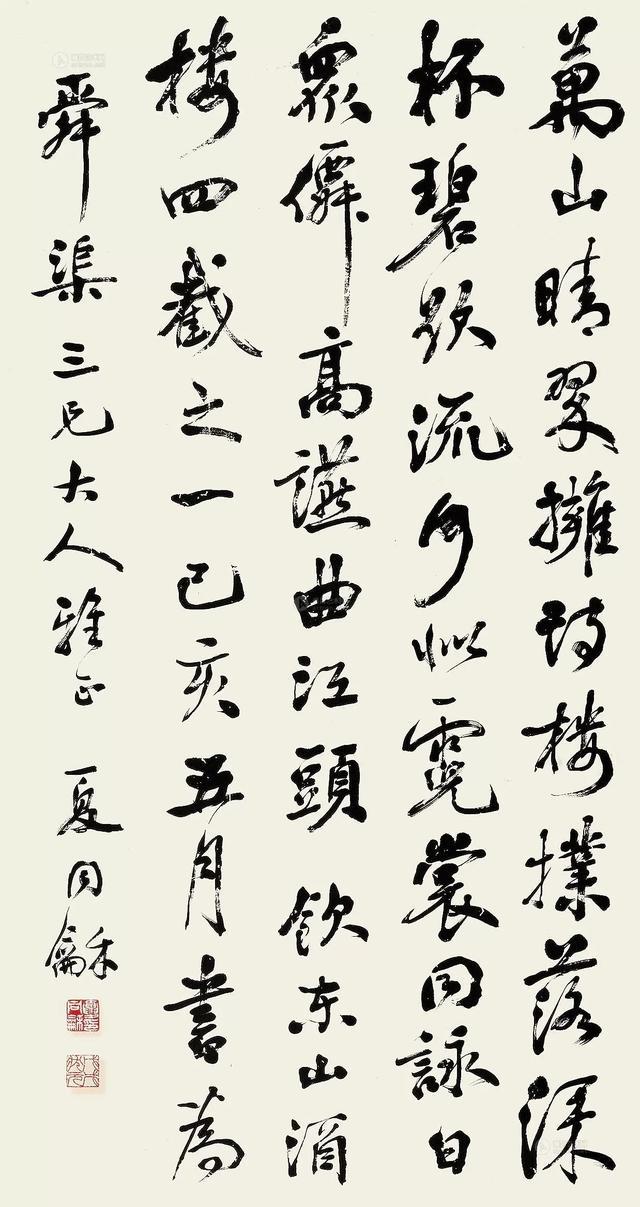 萬山晴翠擁詩樓撲落深
杯碧欲流何似霓裳同詠日
眾僊高讌曲江頭 飲東山酒
樓四截之一己亥五月書為
舜渠三兄大人雅正 夏同龢